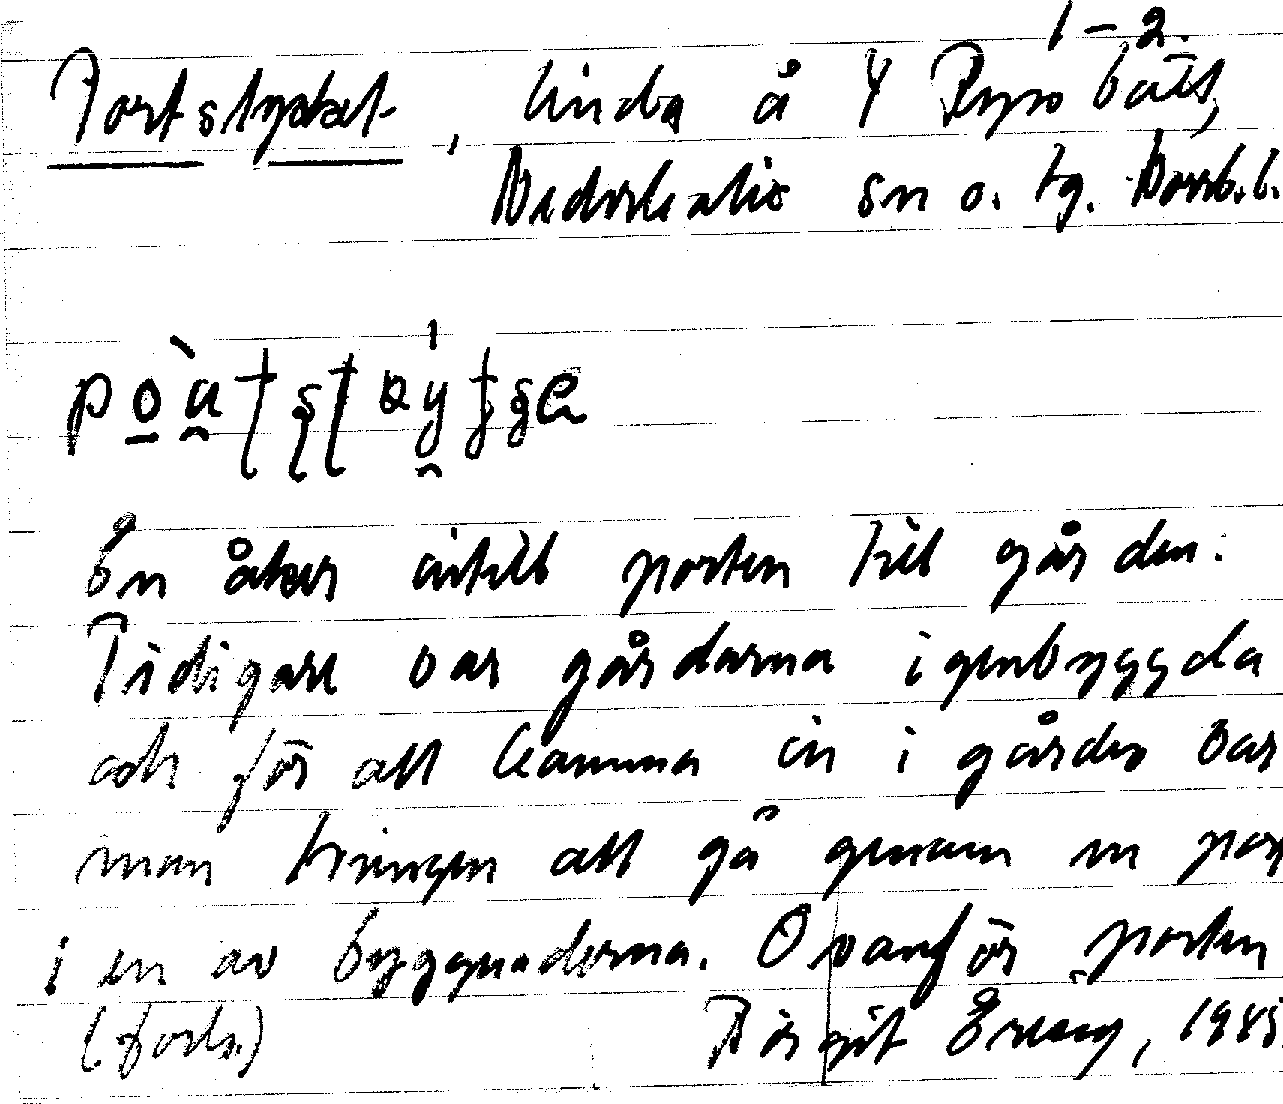 1-2.
Portstycket, linda å Y Ryssbält,
Nederkalix sn o. tg. Norrb.l.
En åker intill porten till gården.
Tidigare var gårdarna igenbyggda
och för att komma in i gården var
man tvungen att gå genom en port
i en av byggnaderna. Ovanför porten
(forts.)
1985